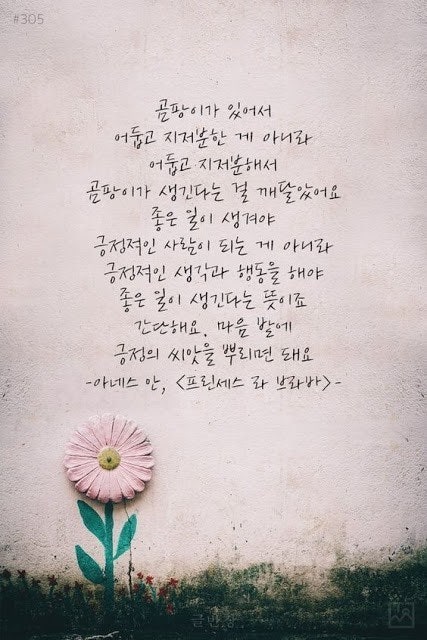 #305
곰팡이가 있어서
어둡고 지저분한 게 아니라
어둡고 지저분해서
곰팡이가 생긴다는 걸 깨달았어요
좋은 일이 생겨야
긍정적인 사람이 되는 게 아니라
긍정적인 생각과 행동을 해야
좋은 일이 생긴다는 뜻이죠
간단해요. 마음 밭에
긍정의 씨앗을 뿌리면 돼요
-아네스 안, <프린세스 라 브라바>-